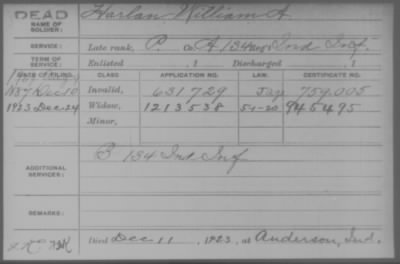 DEAD
NAME OF SOLDIER:
Harlan, William A.
SERVICE:
Late rank, P. Co. A, 134 Reg't Ind Inf.
TERM OF SERVICE:
Enlisted , 1 Discharged , 1
DATE OF FILING. CLASS APPLICATION NO. LAW. CERTIFICATE NO.
1887 Dec 10 Invalid, 631729 Jap 759.005
1923-Dec-24 Widow, 1213538 945495
Minor,
ADDITIONAL SERVICES:
B 134 Ind. Inf
REMARKS:
Died Dec 11, 1923, at Anderson, Ind.